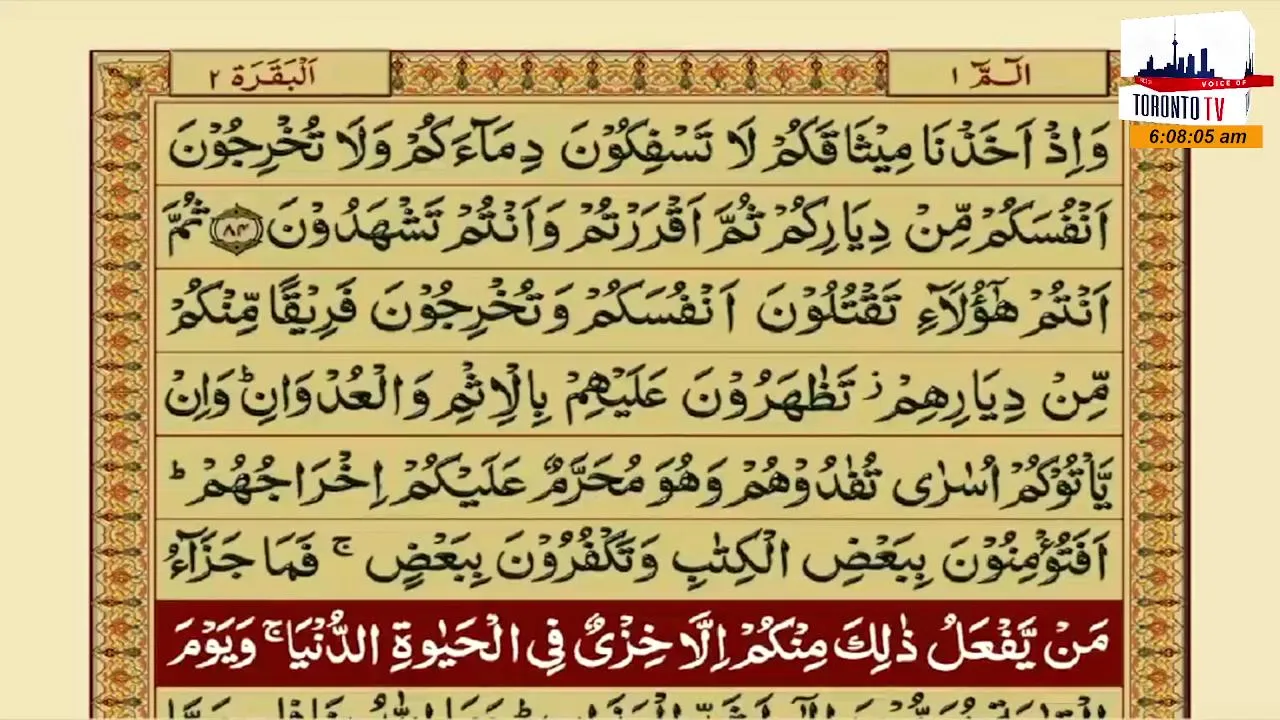 الٓمّٓ ١
اَلْبَقَرَة ٢
VOICE OF
TORONTO TV
6:08:05 am
وَاِذْ اَخَذْنَا مِيْثَاقَكُمْ لَا تَسْفِكُوْنَ دِمَآءَكُمْ وَلَا تُخْرِجُوْنَ
اَنْفُسَكُمْ مِّنْ دِيَارِكُمْ ثُمَّ اَقْرَرْتُمْ وَاَنْتُمْ تَشْهَدُوْنَ ﴿۸۴﴾ ثُمَّ
اَنْتُمْ هٰٓؤُلَآءِ تَقْتُلُوْنَ اَنْفُسَكُمْ وَتُخْرِجُوْنَ فَرِيْقًا مِّنْكُمْ
مِّنْ دِيَارِهِمْ ز تَظٰهَرُوْنَ عَلَيْهِمْ بِالْاِثْمِ وَالْعُدْوَانِ ؕ وَاِنْ
يَّاْتُوْكُمْ اُسٰرٰى تُفٰدُوْهُمْ وَهُوَ مُحَرَّمٌ عَلَيْكُمْ اِخْرَاجُهُمْ ؕ
اَفَتُؤْمِنُوْنَ بِبَعْضِ الْكِتٰبِ وَتَكْفُرُوْنَ بِبَعْضٍ ۚ فَمَا جَزَآءُ
مَنْ يَّفْعَلُ ذٰلِكَ مِنْكُمْ اِلَّا خِزْىٌ فِى الْحَيٰوةِ الدُّنْيَا ۚ وَيَوْمَ